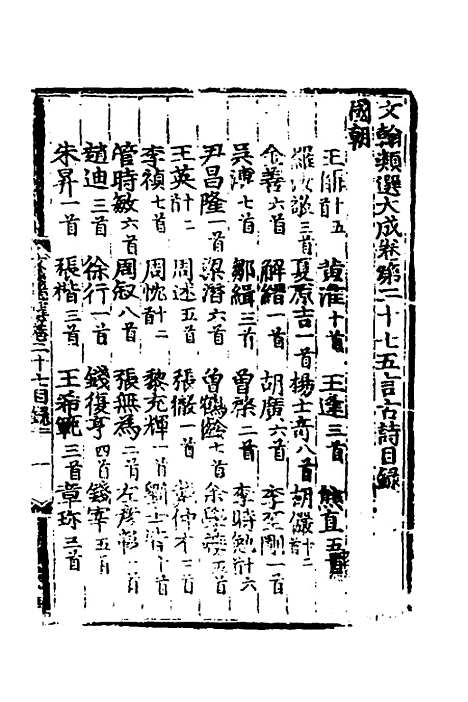 文翰類選大成卷第二十七五言古詩目錄
國朝
王 十五 黃淮十首 王逢三首 熊直五首
羅汝敬三首 夏原吉一首 楊士奇八首 胡儼
金善六首 解縉一首 胡廣六首 李至剛一首
吳溥七首 鄒緝三首 曾棨二首 李時勉 六
尹昌隆一首 梁潛六首 曾鶴齡七首 余學夔五首
王英 二 周述五首 張徹一首 仲才二首
李禎七首 周忱 二 黎充輝一首
管時敏六首 周敘八首 張無為二首
趙迪三首 徐行一首 錢復亨四首 錢宰五首
朱昇一首 張楷三首 王希範三首 章珍三首
卷二十七目錄 一